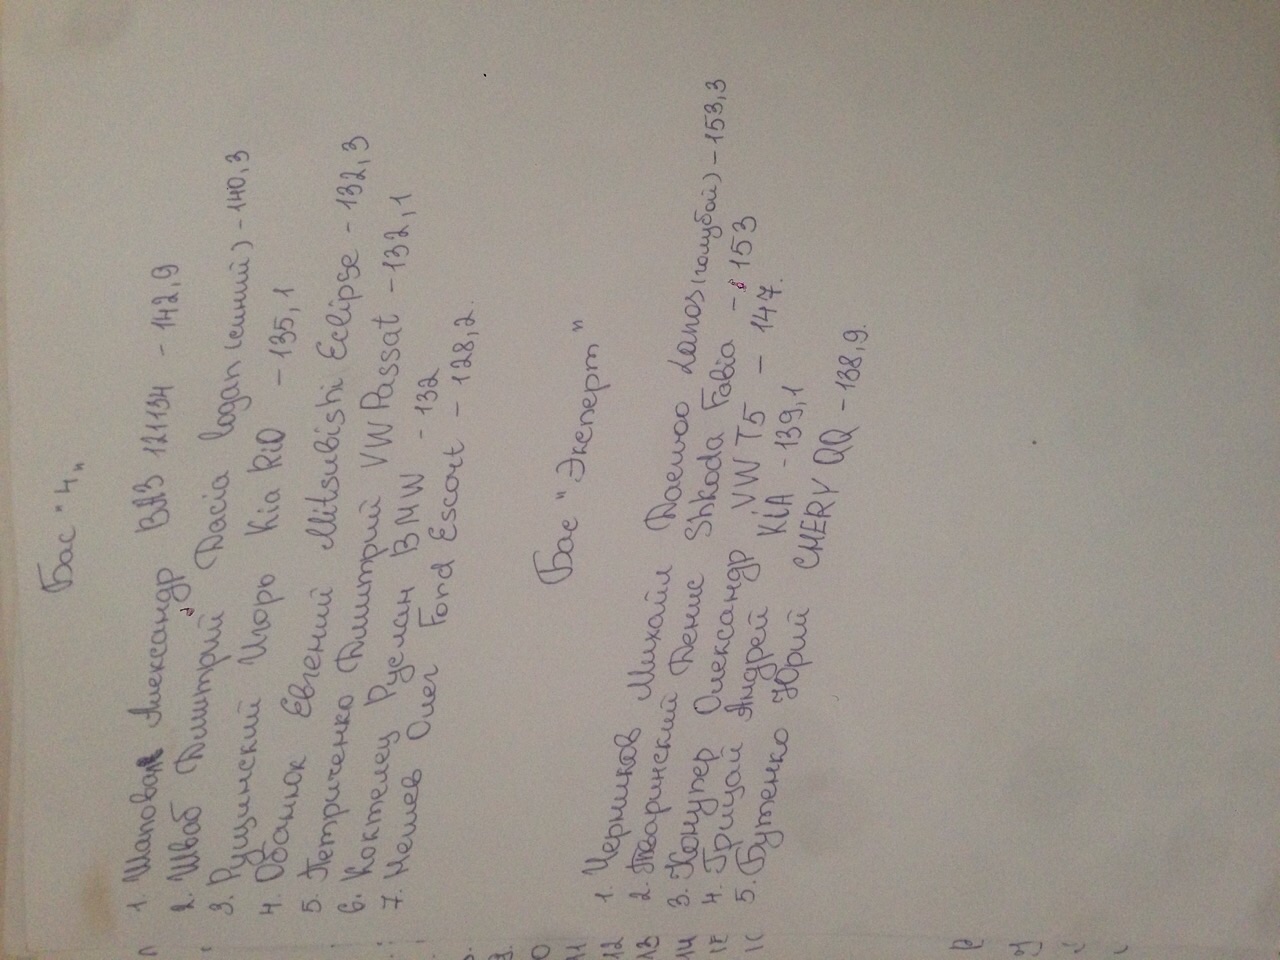 Бас "4"
1. Шаповал Александр ВАЗ 121134 - 142,9
2. Шваб Дмитрий Dacia logan (синий) - 140,3
3. Рущинский Игорь Kia Rio - 135,1
4. Обанюк Евгений Mitsubishi Eclipse - 132,3
5. Петриченко Дмитрий VW Passat - 132,1
6. Коктелец Руслан BMW - 132
7. Мешев Олег Ford Escort - 128,2.
Бас "Эксперт"
1. Черников Михаил Daewoo Lanos (голубой) - 153,3
2. Тваринский Денис Shkoda Fabia - 153
3. Конупер Олександр VW T5 - 147.
4. Грицай Андрей KIA - 139,1
5. Бутенко Юрий CHERY QQ - 138,9.